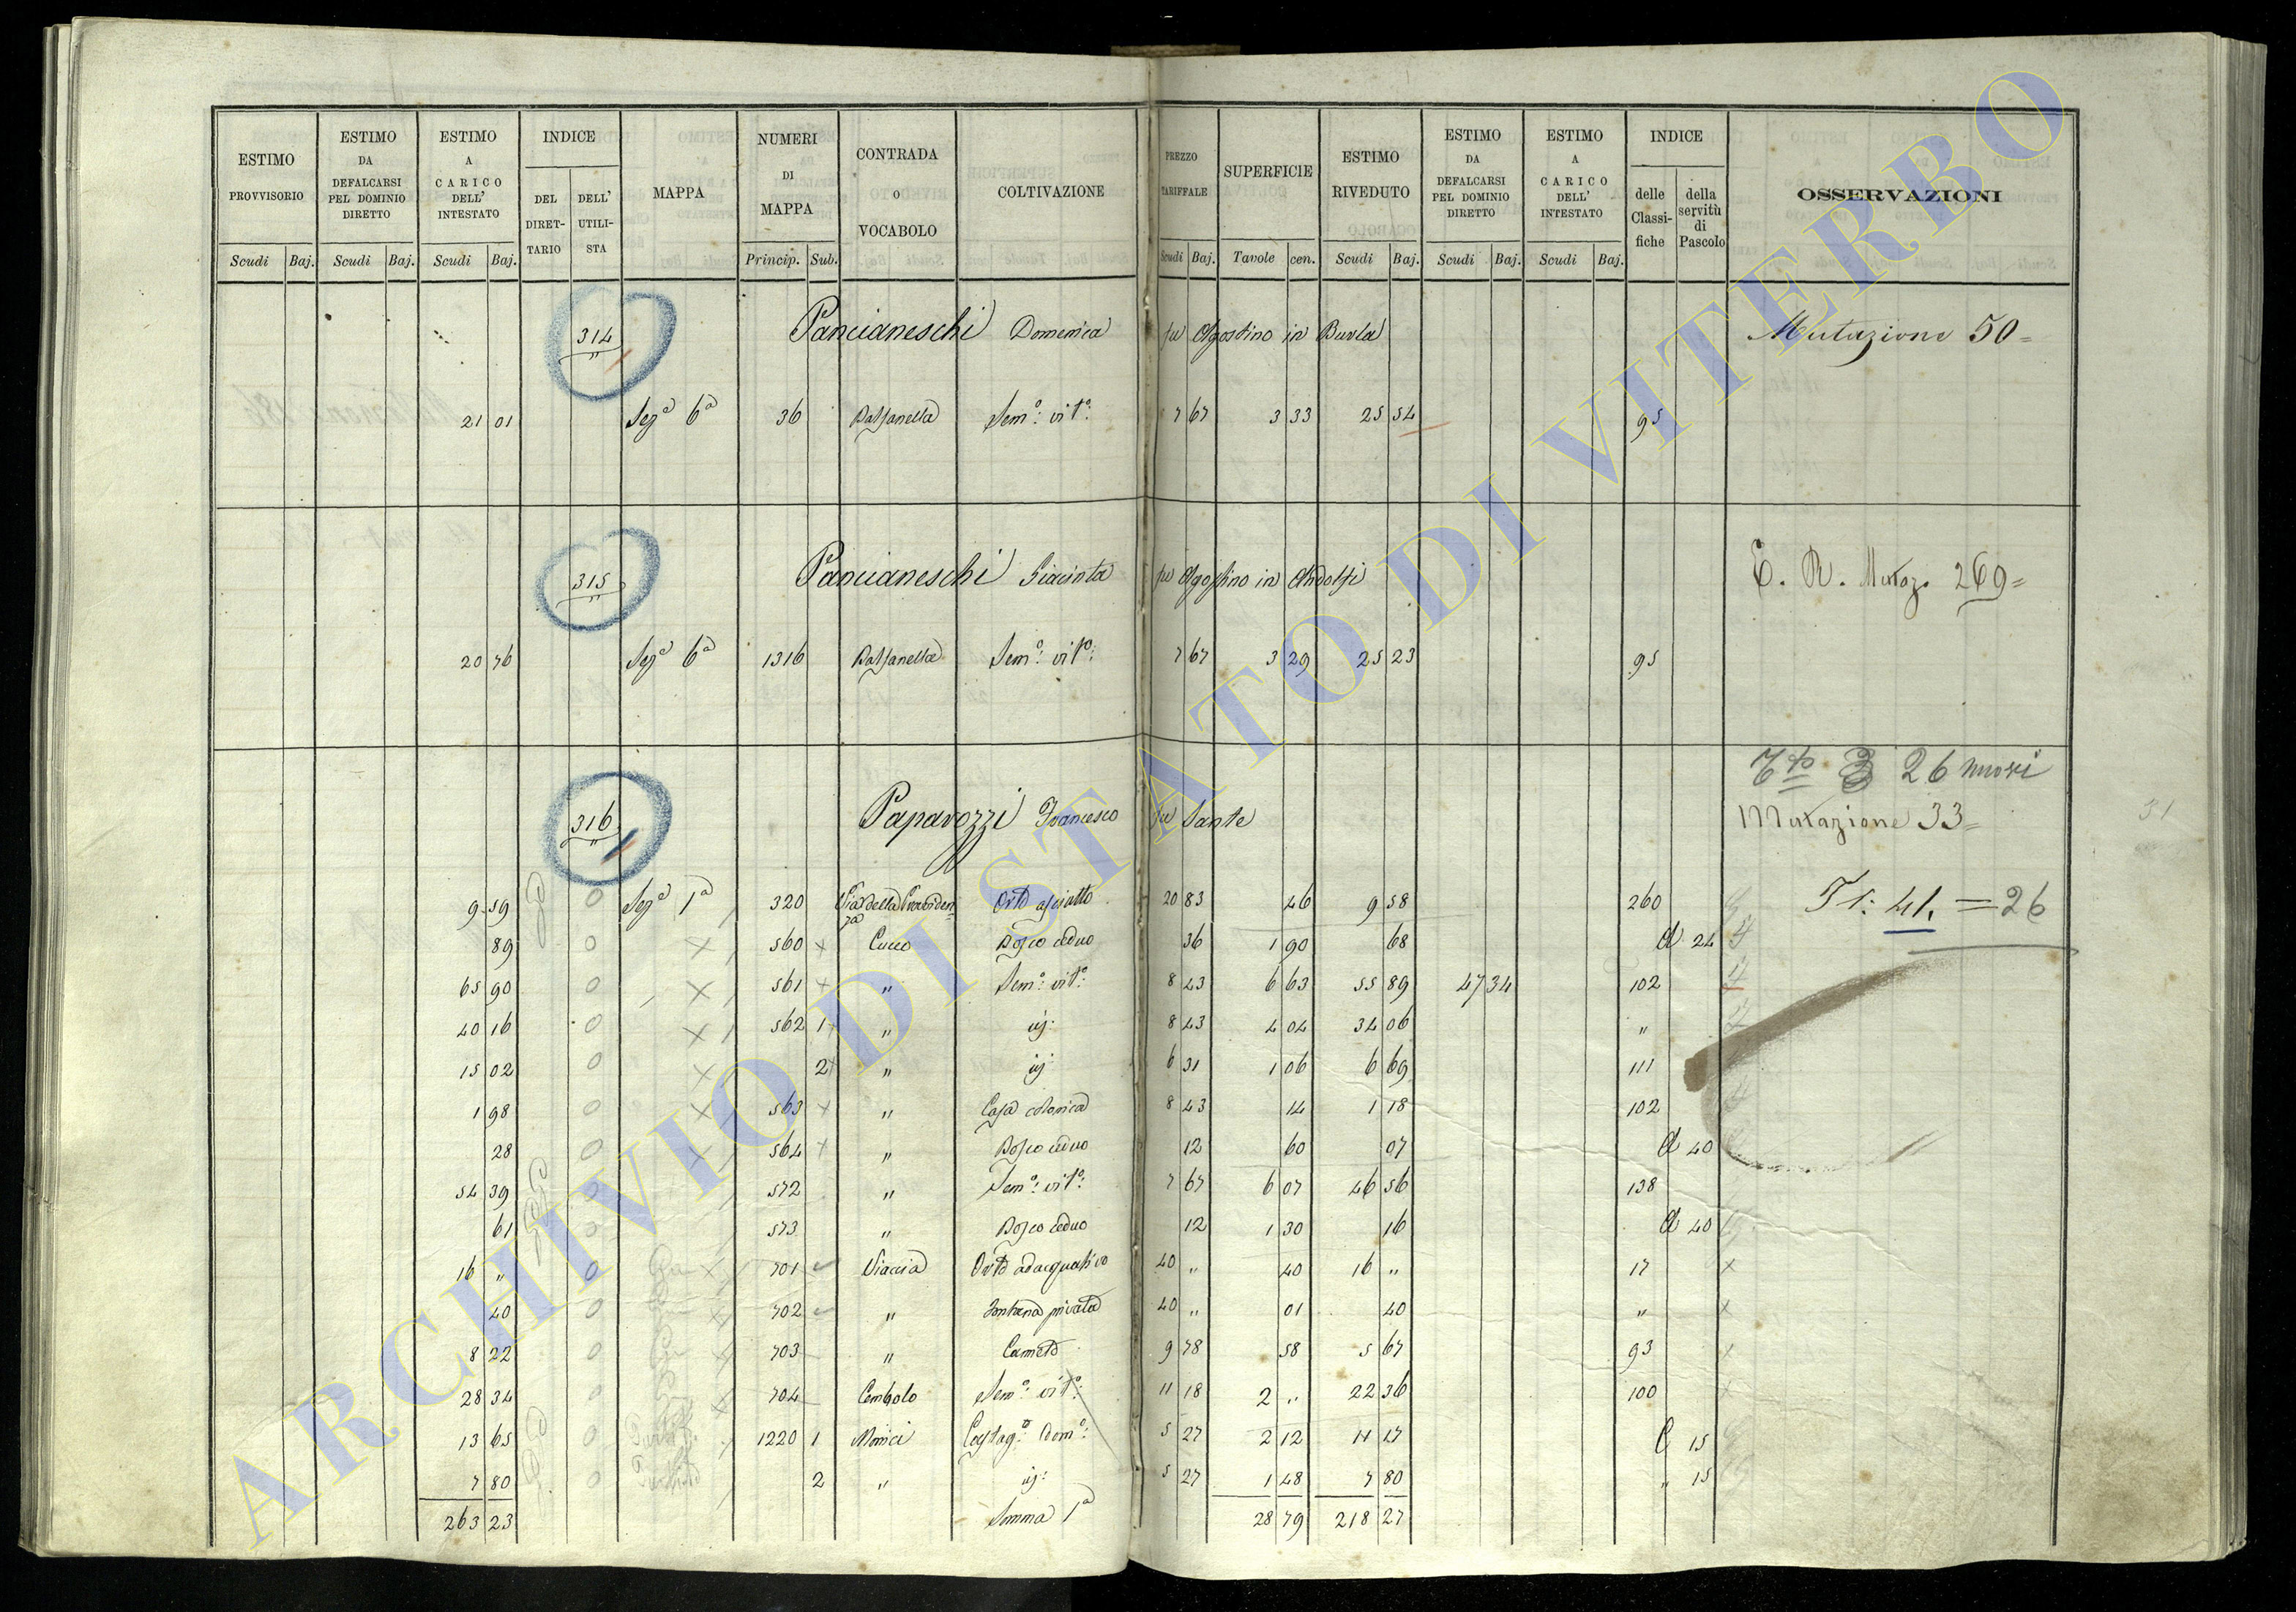 ESTIMO PROVVISORIO Scudi Baj. ESTIMO DA DEFALCARSI PEL DOMINIO DIRETTO Scudi Baj. ESTIMO A CARICO DELL' INTESTATO Scudi Baj. INDICE DEL DIRETTARIO DELL' UTILISTA MAPPA NUMERI DI MAPPA Princip. Sub. CONTRADA O VOCABOLO COLTIVAZIONE PREZZO TARIFFALE Scudi Baj. SUPERFICIE Tavole cen. ESTIMO RIVEDUTO Scudi Baj. ESTIMO DA DEFALCARSI PEL DOMINIO DIRETTO Scudi Baj. ESTIMO A CARICO DELL' INTESTATO Scudi Baj. INDICE delle Classifiche della servitù di Pascolo OSSERVAZIONI
314 Pancianeschi Domenica fu Agostino in Burla Mutazione 50=
21 01 Sez.a 6a 36 Balzanella Sem.o: vit.o: 7 67 3 33 25 54 95
315 Pancianeschi Giacinta fu Agostino in Andolfi E. R. Mutaz. 269=
20 76 Sez.a 6a 1316 Balzanella Sem.o: vit.o: 7 67 3 29 25 23 95
26 nuovi
316 Paparozzi Francesco fu Sante Mutazione 33=
9 59 0 Sez.a 1a 320 Via della Providenza Orto asciutto 20 83 46 9 58 260 41. = 26
89 0 × 560 × Cucco Bosco ceduo 36 1 90 68 A 24
65 90 0 × 561 × " Sem.o: vit.o: 8 43 6 63 55 89 47 34 102
40 16 0 × 562 1 " iij: 8 43 4 04 34 06 "
15 02 0 × 2 " iij 6 31 1 06 6 69 111
1 98 0 × 563 × " Casa colonica 8 43 14 1 18 102
28 0 × 564 × " Bosco ceduo 12 60 07 A 40
54 39 0 572 " Sem.o: vit.o: 7 67 6 07 46 56 138
61 0 573 " Bosco ceduo 12 1 30 16 A 40
16 " 0 × 701 Viaccia Orto adacquativo 40 " 40 16 " 17 ×
40 0 × 702 " Fontana privata 40 " 01 40 " ×
8 22 0 × 703 " Canneto 9 78 58 5 67 93 ×
28 34 0 × 704 Cembolo Sem.o: vit.o: 11 18 2 " 22 36 100 ×
13 65 0 1220 1 Monici Castag.o: Dom.o: 5 27 2 12 11 17 C 15
7 80 0 2 " iij: 5 27 1 48 7 80 " 15
263 23 Somma 1a 28 79 218 27
31
ARCHIVIO DI STATO DI VITERBO